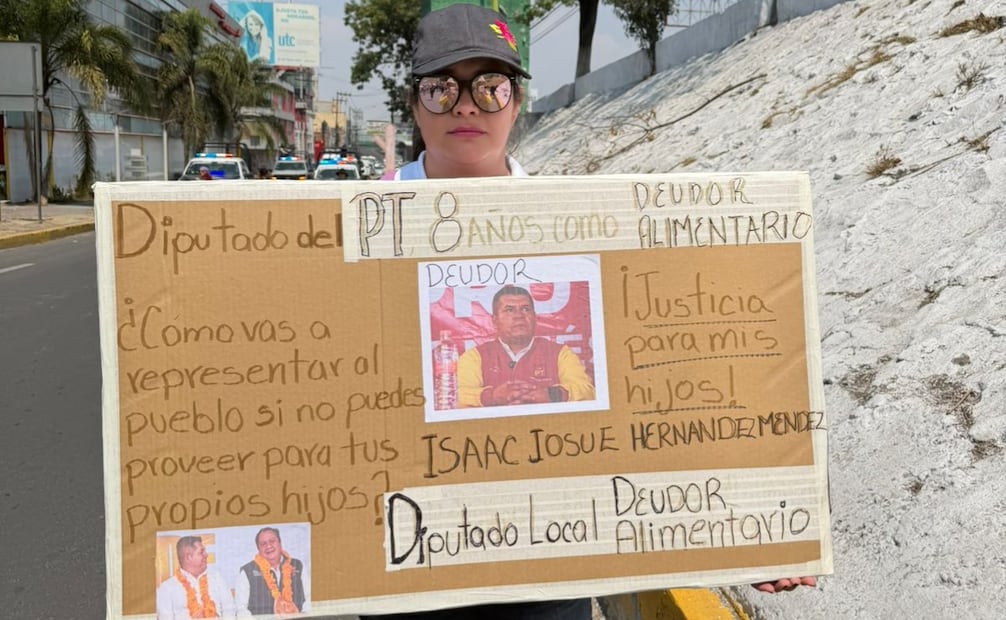 utc
Diputado del PT, 8 AÑOS como DEUDOR
ALIMENTARIO
DEUDOR
¿Cómo vas a
representar al
pueblo si no puedes
proveer para tus
propios hijos?
¡Justicia
para mis
hijos!
ISAAC JOSUE HERNANDEZ MENDEZ
Diputado Local DEUDOR
Alimentario